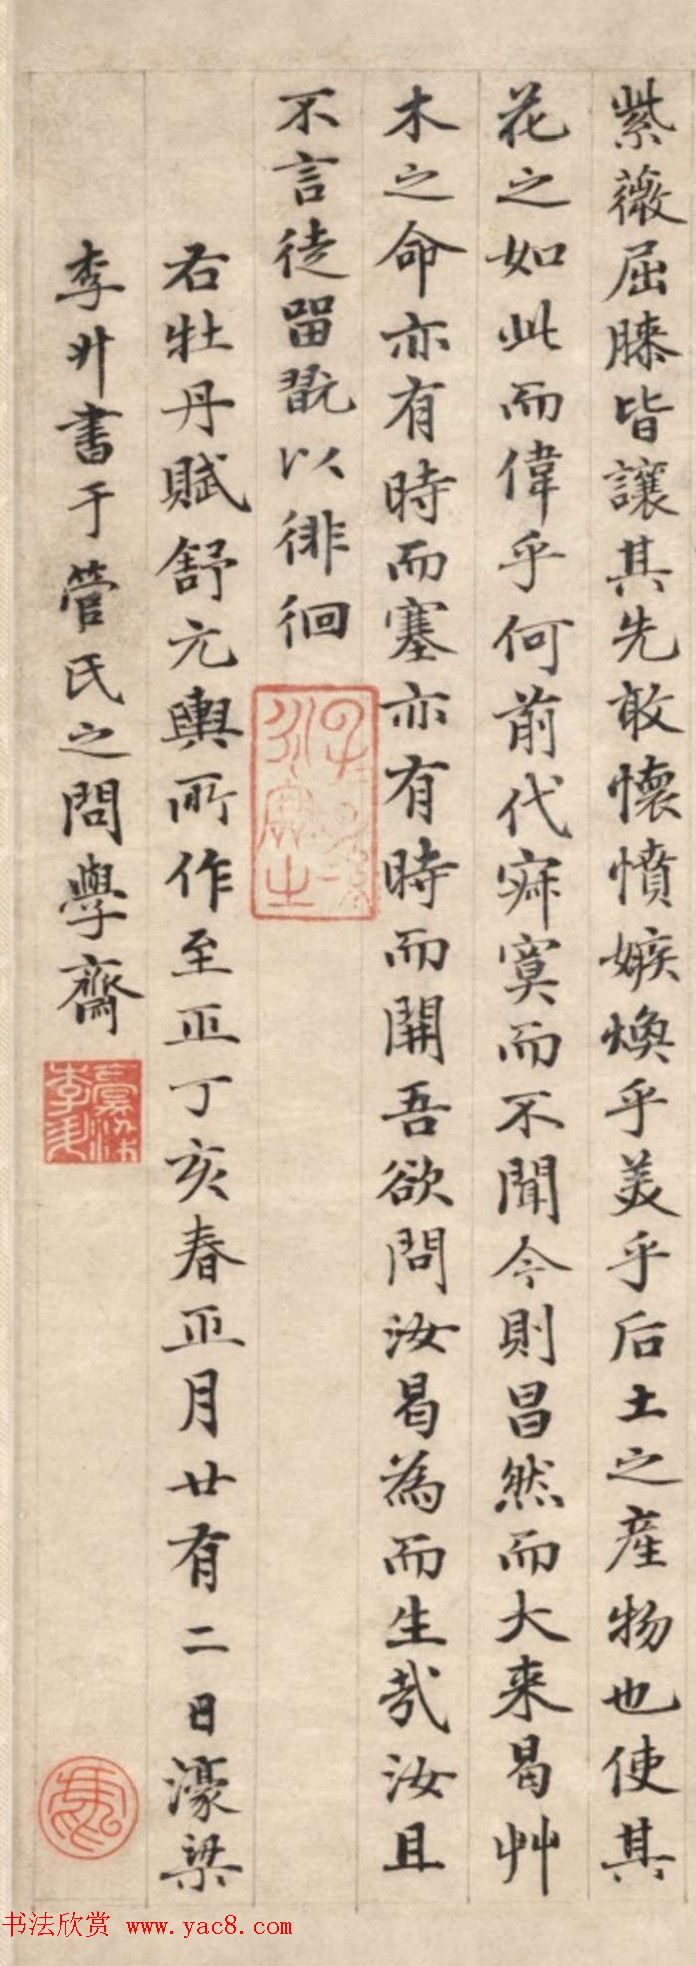 紫薇屈膝皆讓其先敢懷憤嫉煥乎美乎后土之産物也使其
花之如此而偉乎何前代寂寞而不聞今則昌然而大来曷艸
木之命亦有時而塞亦有時而開吾欲問汝曷為而生哉汝且
不言徒留翫以徘徊
右牡丹賦舒元輿所作至正丁亥春正月廿有二日濠梁
李升書于管氏之問學齋
书法欣赏 www.yac8.com